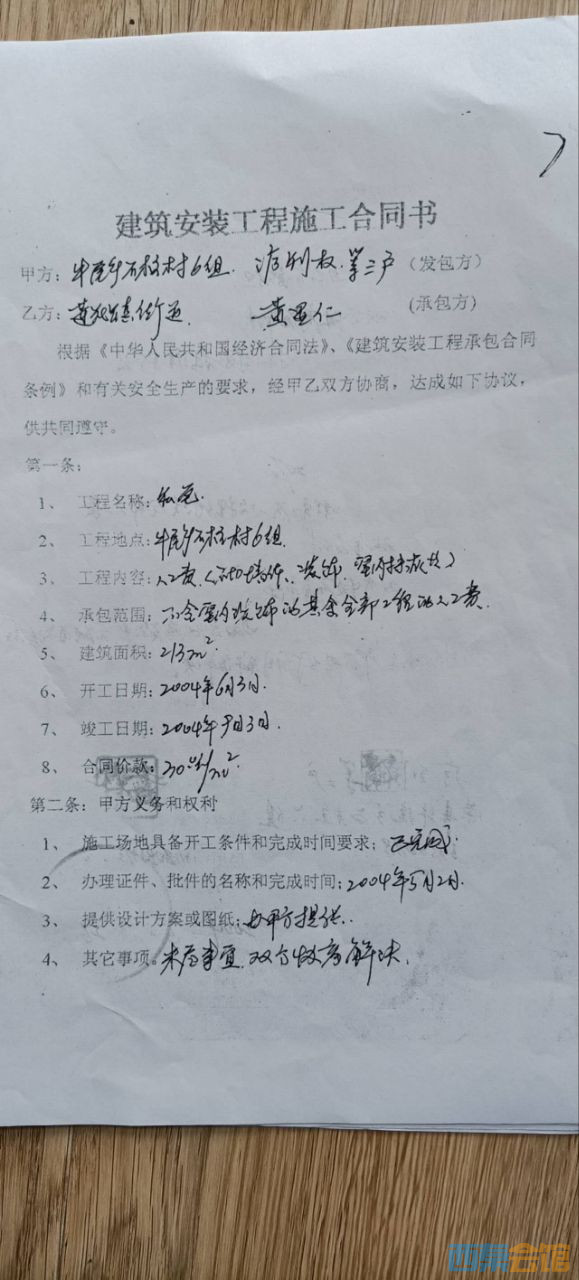 建筑安装工程施工合同书
甲方：牛尾乡石柱村6组. 等三户（发包方）
乙方： 黄显仁 （承包方）
根据《中华人民共和国经济合同法》、《建筑安装工程承包合同
条例》和有关安全生产的要求，经甲乙双方协商，达成如下协议，
供共同遵守。
第一条：
1、 工程名称：私宅.
2、 工程地点：牛尾乡石柱村6组.
3、 工程内容：人工费
4、 承包范围：不含室内装饰的其余全部工程的人工费.
5、 建筑面积：213m².
6、 开工日期：2004年6月3日.
7、 竣工日期：2004年9月3日.
8、 合同价款：
第二条：甲方义务和权利
1、 施工场地具备开工条件和完成时间要求：已完成.
2、 办理证件、批件的名称和完成时间：2004年5月2日.
3、 提供设计方案或图纸：由甲方提供.
4、 其它事项。未尽事宜.双方协商解决.
西祠会馆